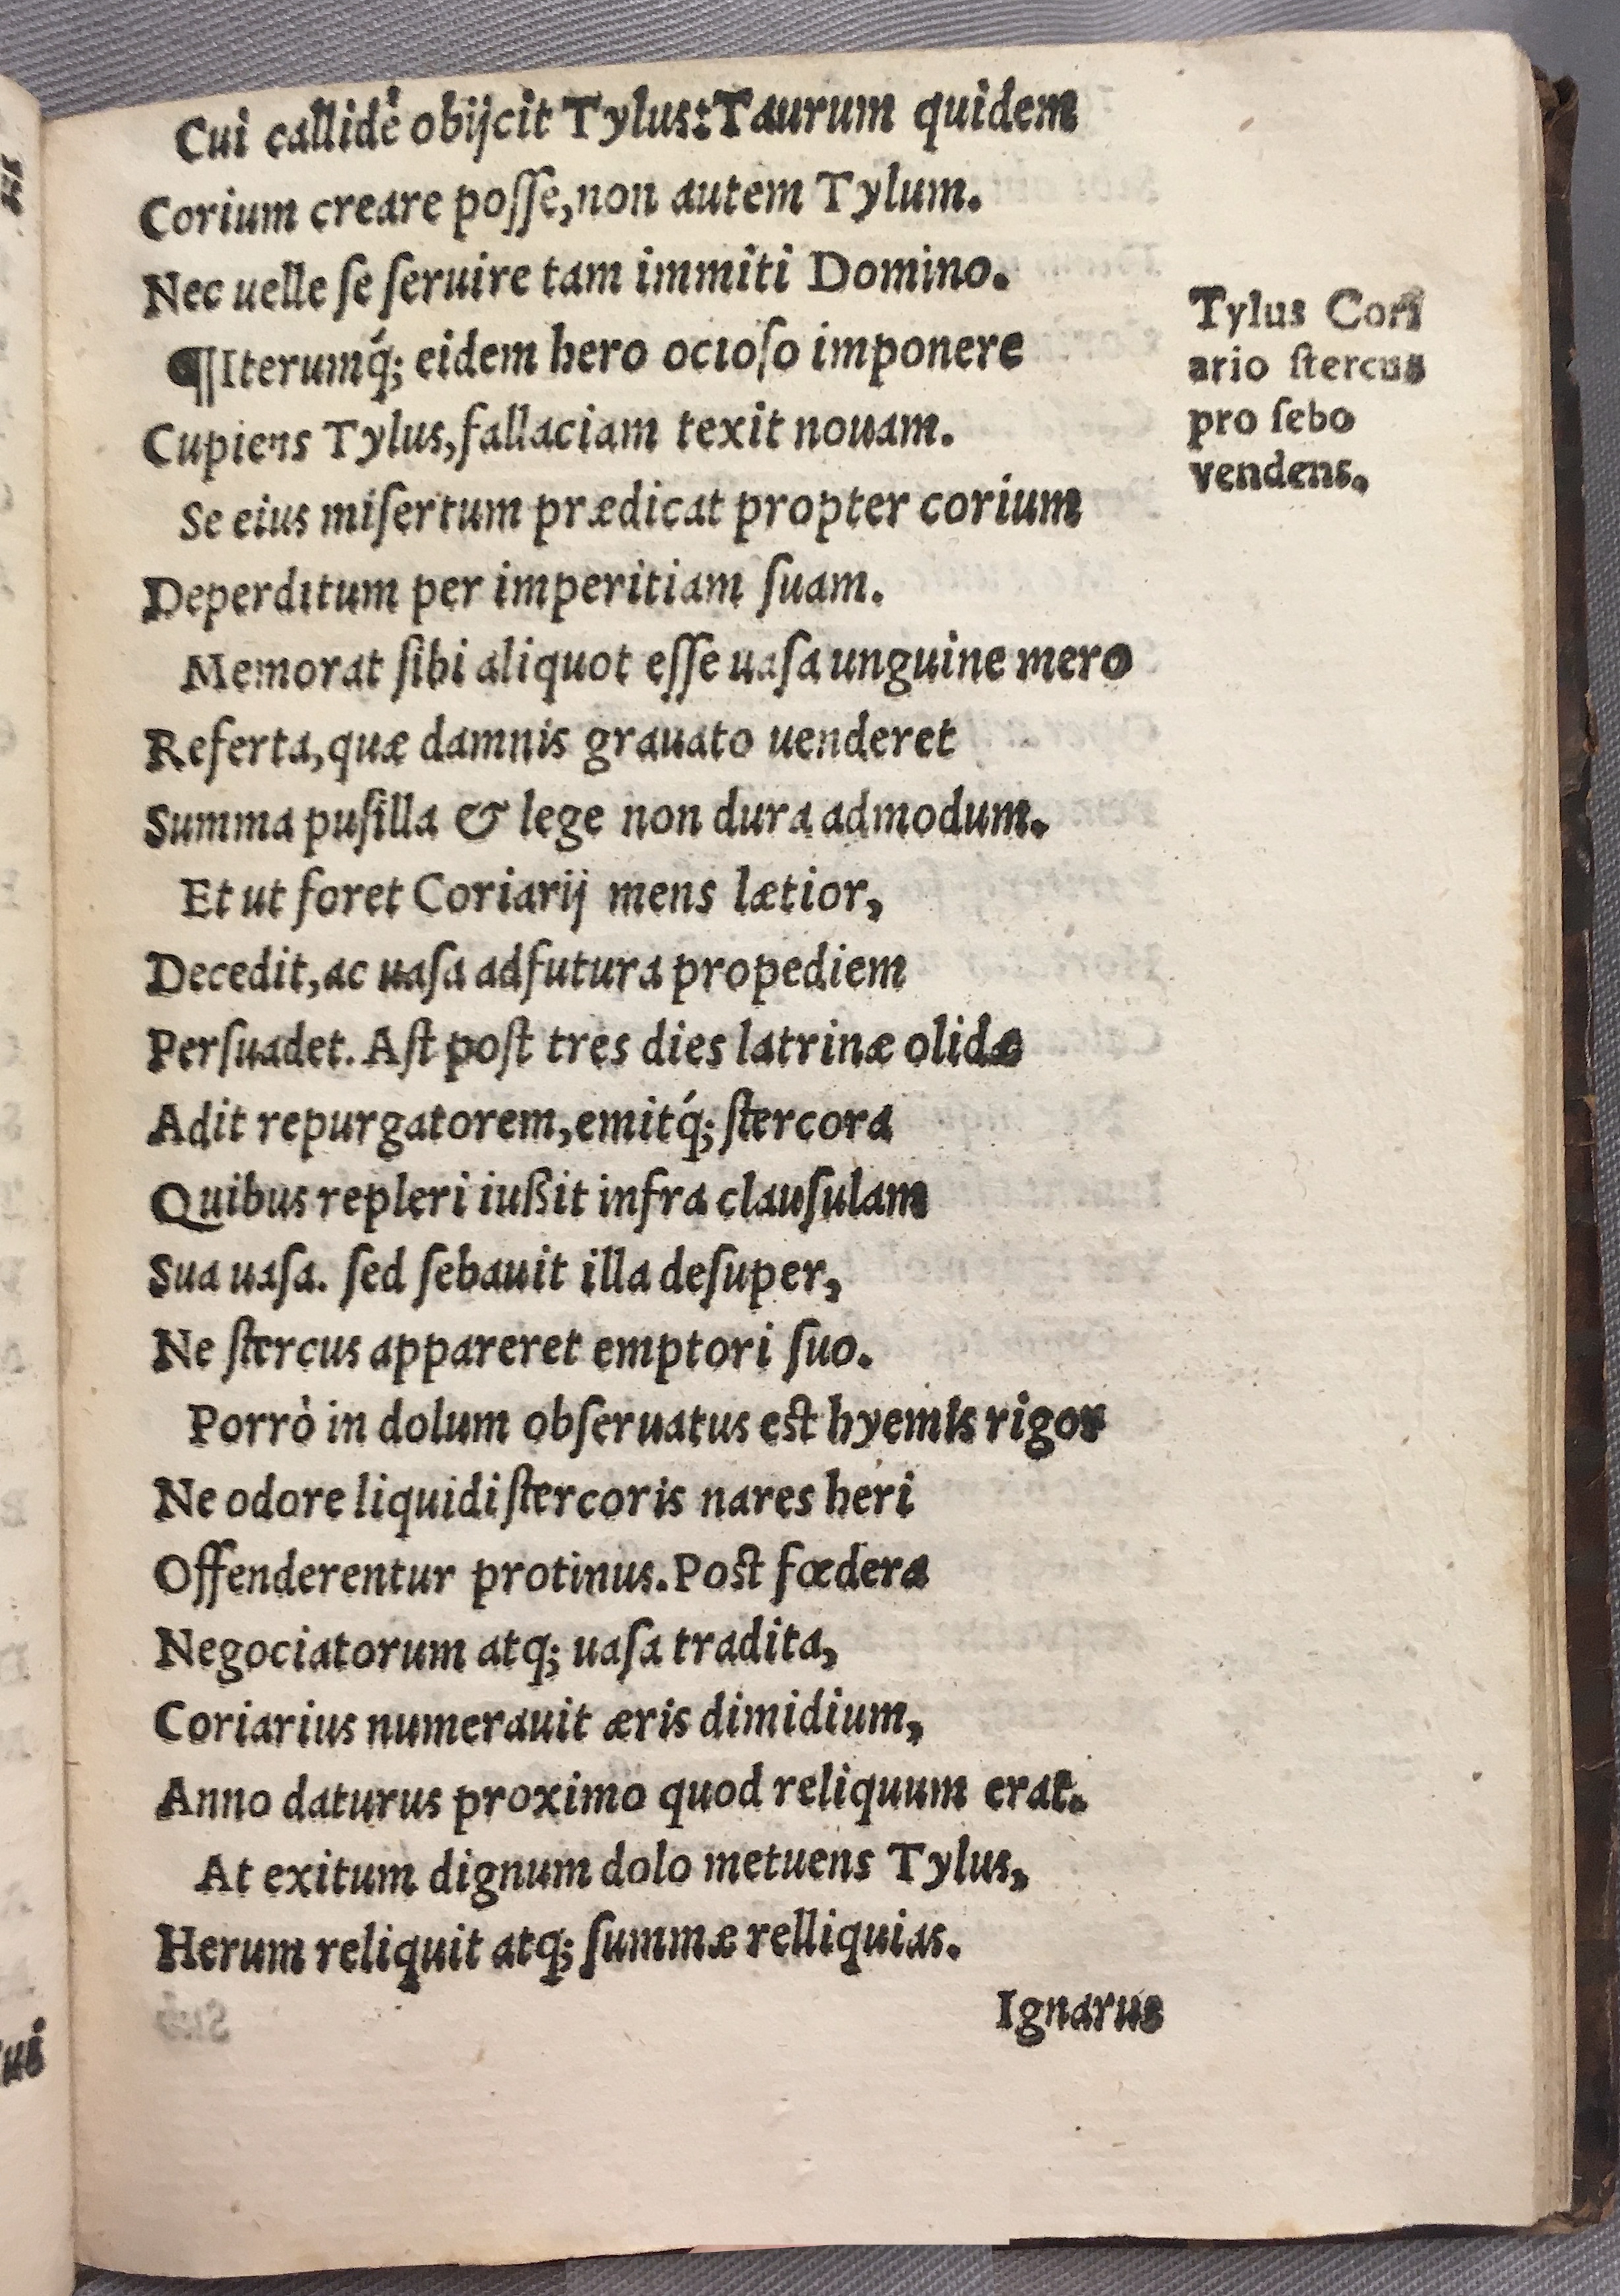 Cui callidè obijcit Tylus: Taurum quidem
Corium creare poſſe, non autem Tylum.
Nec uelle ſe ſeruire tam immiti Domino.
¶Iterumq́; eidem hero ocioſo imponere
Cupiens Tylus, fallaciam texit nouam.
Se eius miſertum prædicat propter corium
Deperditum per imperitiam ſuam.
Memorat ſibi aliquot eſſe uaſa unguine mero
Referta, quæ damnis grauato uenderet
Summa puſilla & lege non dura admodum.
Et ut foret Coriarij mens lætior,
Decedit, ac uaſa adfutura propediem
Perſuadet. Aſt poſt tres dies latrinæ olidæ
Adit repurgatorem, emitq́; ſtercora
Quibus repleri iußit infra clauſulam
Sua uaſa. ſed ſebauit illa deſuper,
Ne ſtercus appareret emptori ſuo.
Porrò in dolum obſeruatus est hyemis rigor
Ne odore liquidi ſtercoris nares heri
Offenderentur protinus. Post fœdera
Negociatorum atq; uaſa tradita,
Coriarius numerauit æris dimidium,
Anno daturus proximo quod reliquum erat.
At exitum dignum dolo metuens Tylus,
Herum reliquit atq; ſummæ relliquias.
Ignarus
Tylus Cori
ario ſtercus
pro ſebo
vendens.